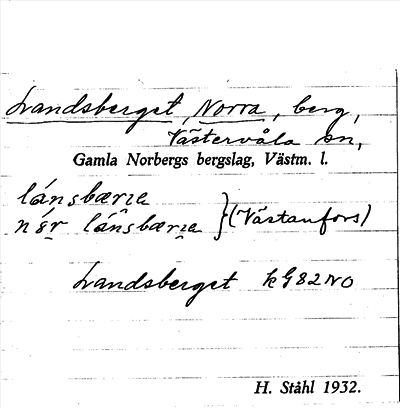 Landsberget, Norra, berg,
Västervåla sn,
Gamla Norbergs bergslag, Västm. l.
lánsbærⱬa
nǿr lánsbærⱬa } (Västanfors)
Landsberget kG82NO
H. Ståhl 1932.